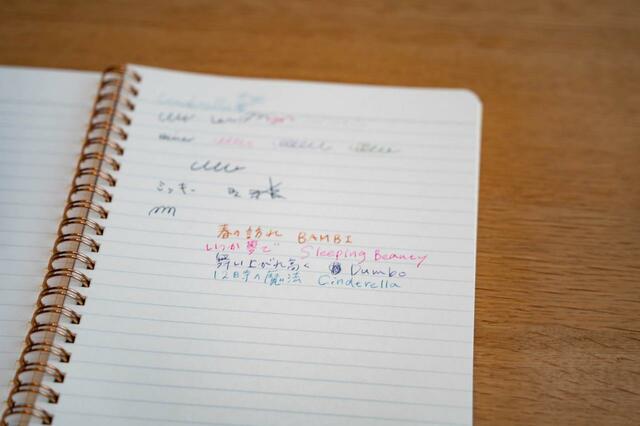 Cinderella
ミッキー
春の訪れ BAMBI
いつか夢で Sleeping Beauty
舞い上がれ高く Dumbo
12時の魔法 Cinderella